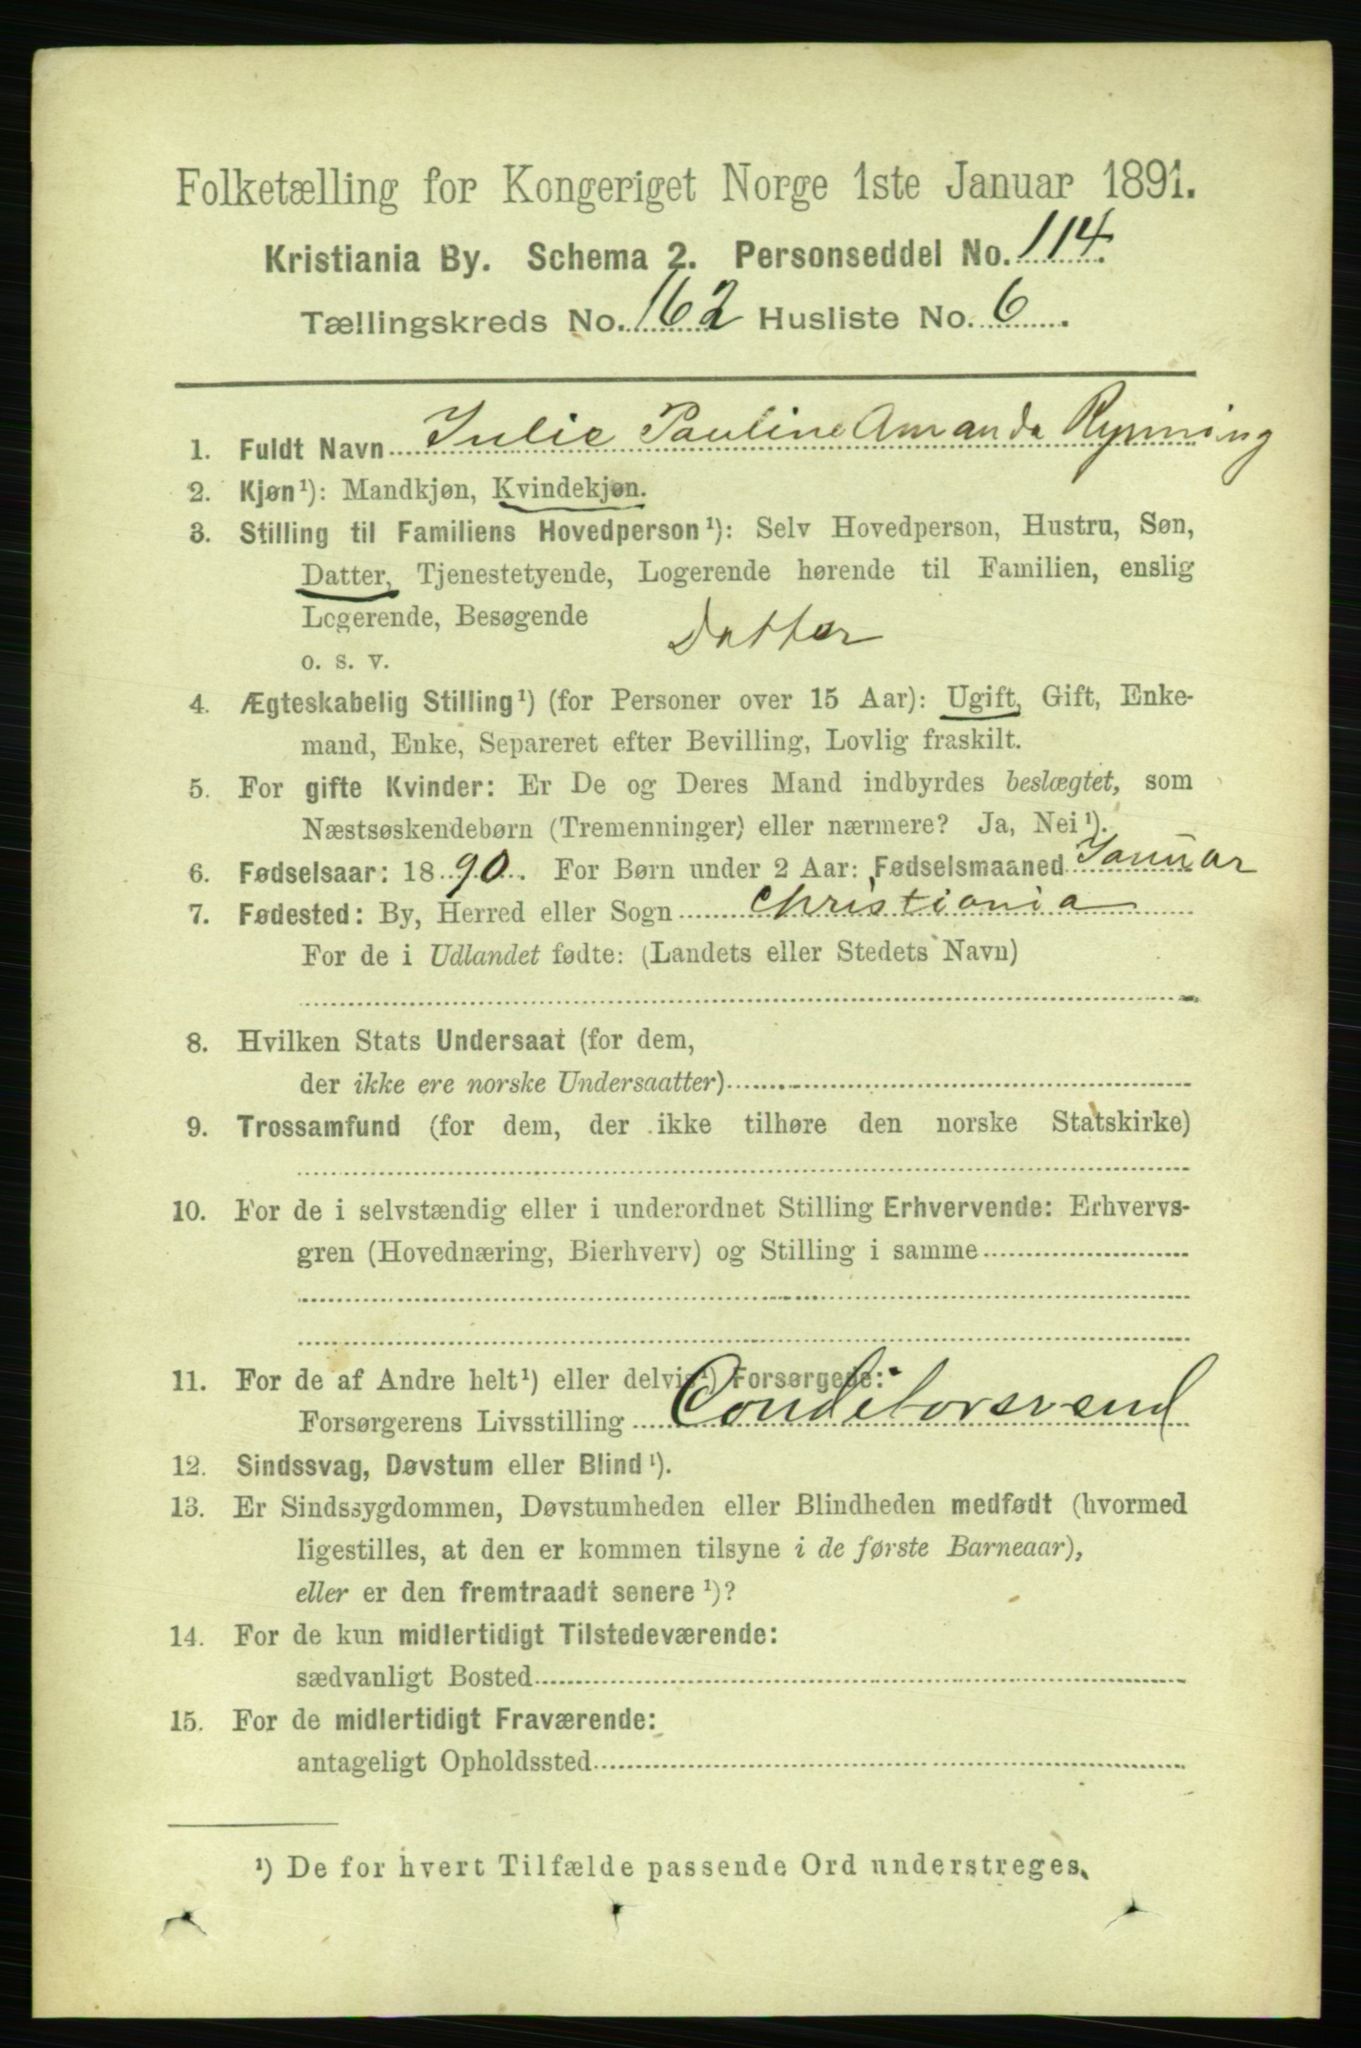 Folketælling for Kongeriget Norge 1ste Januar 1891.
Kristiania By. Schema 2. Personseddel No. 114.
Tællingskreds No. 162 Husliste No. 6.
1. Fuldt Navn Julie Pauline Amanda Rynning
2. Kjøn¹): Mandkjøn, Kvindekjøn.
3. Stilling til Familiens Hovedperson¹): Selv Hovedperson, Hustru, Søn,
Datter, Tjenestetyende, Logerende hørende til Familien, enslig
Logerende, Besøgende Datter
o. s. v.
4. Ægteskabelig Stilling¹) (for Personer over 15 Aar): Ugift, Gift, Enke-
mand, Enke, Separeret efter Bevilling, Lovlig fraskilt.
5. For gifte Kvinder: Er De og Deres Mand indbyrdes beslægtet, som
Næstsøskendebørn (Tremenninger) eller nærmere? Ja, Nei¹).
6. Fødselsaar: 1890. For Børn under 2 Aar: Fødselsmaaned Januar
7. Fødested: By, Herred eller Sogn Christiania
For de i Udlandet fødte: (Landets eller Stedets Navn)
8. Hvilken Stats Undersaat (for dem,
der ikke ere norske Undersaatter)
9. Trossamfund (for dem, der ikke tilhøre den norske Statskirke)
10. For de i selvstændig eller i underordnet Stilling Erhvervende: Erhvervs-
gren (Hovednæring, Bierhverv) og Stilling i samme
11. For de af Andre helt¹) eller delvis¹) Forsørgede:
Forsørgerens Livsstilling Conditorsvend
12. Sindssvag, Døvstum eller Blind¹).
13. Er Sindssygdommen, Døvstumheden eller Blindheden medfødt (hvormed
ligestilles, at den er kommen tilsyne i de første Barneaar),
eller er den fremtraadt senere¹)?
14. For de kun midlertidigt Tilstedeværende:
sædvanligt Bosted
15. For de midlertidigt Fraværende:
antageligt Opholdssted
¹) De for hvert Tilfælde passende Ord understreges.